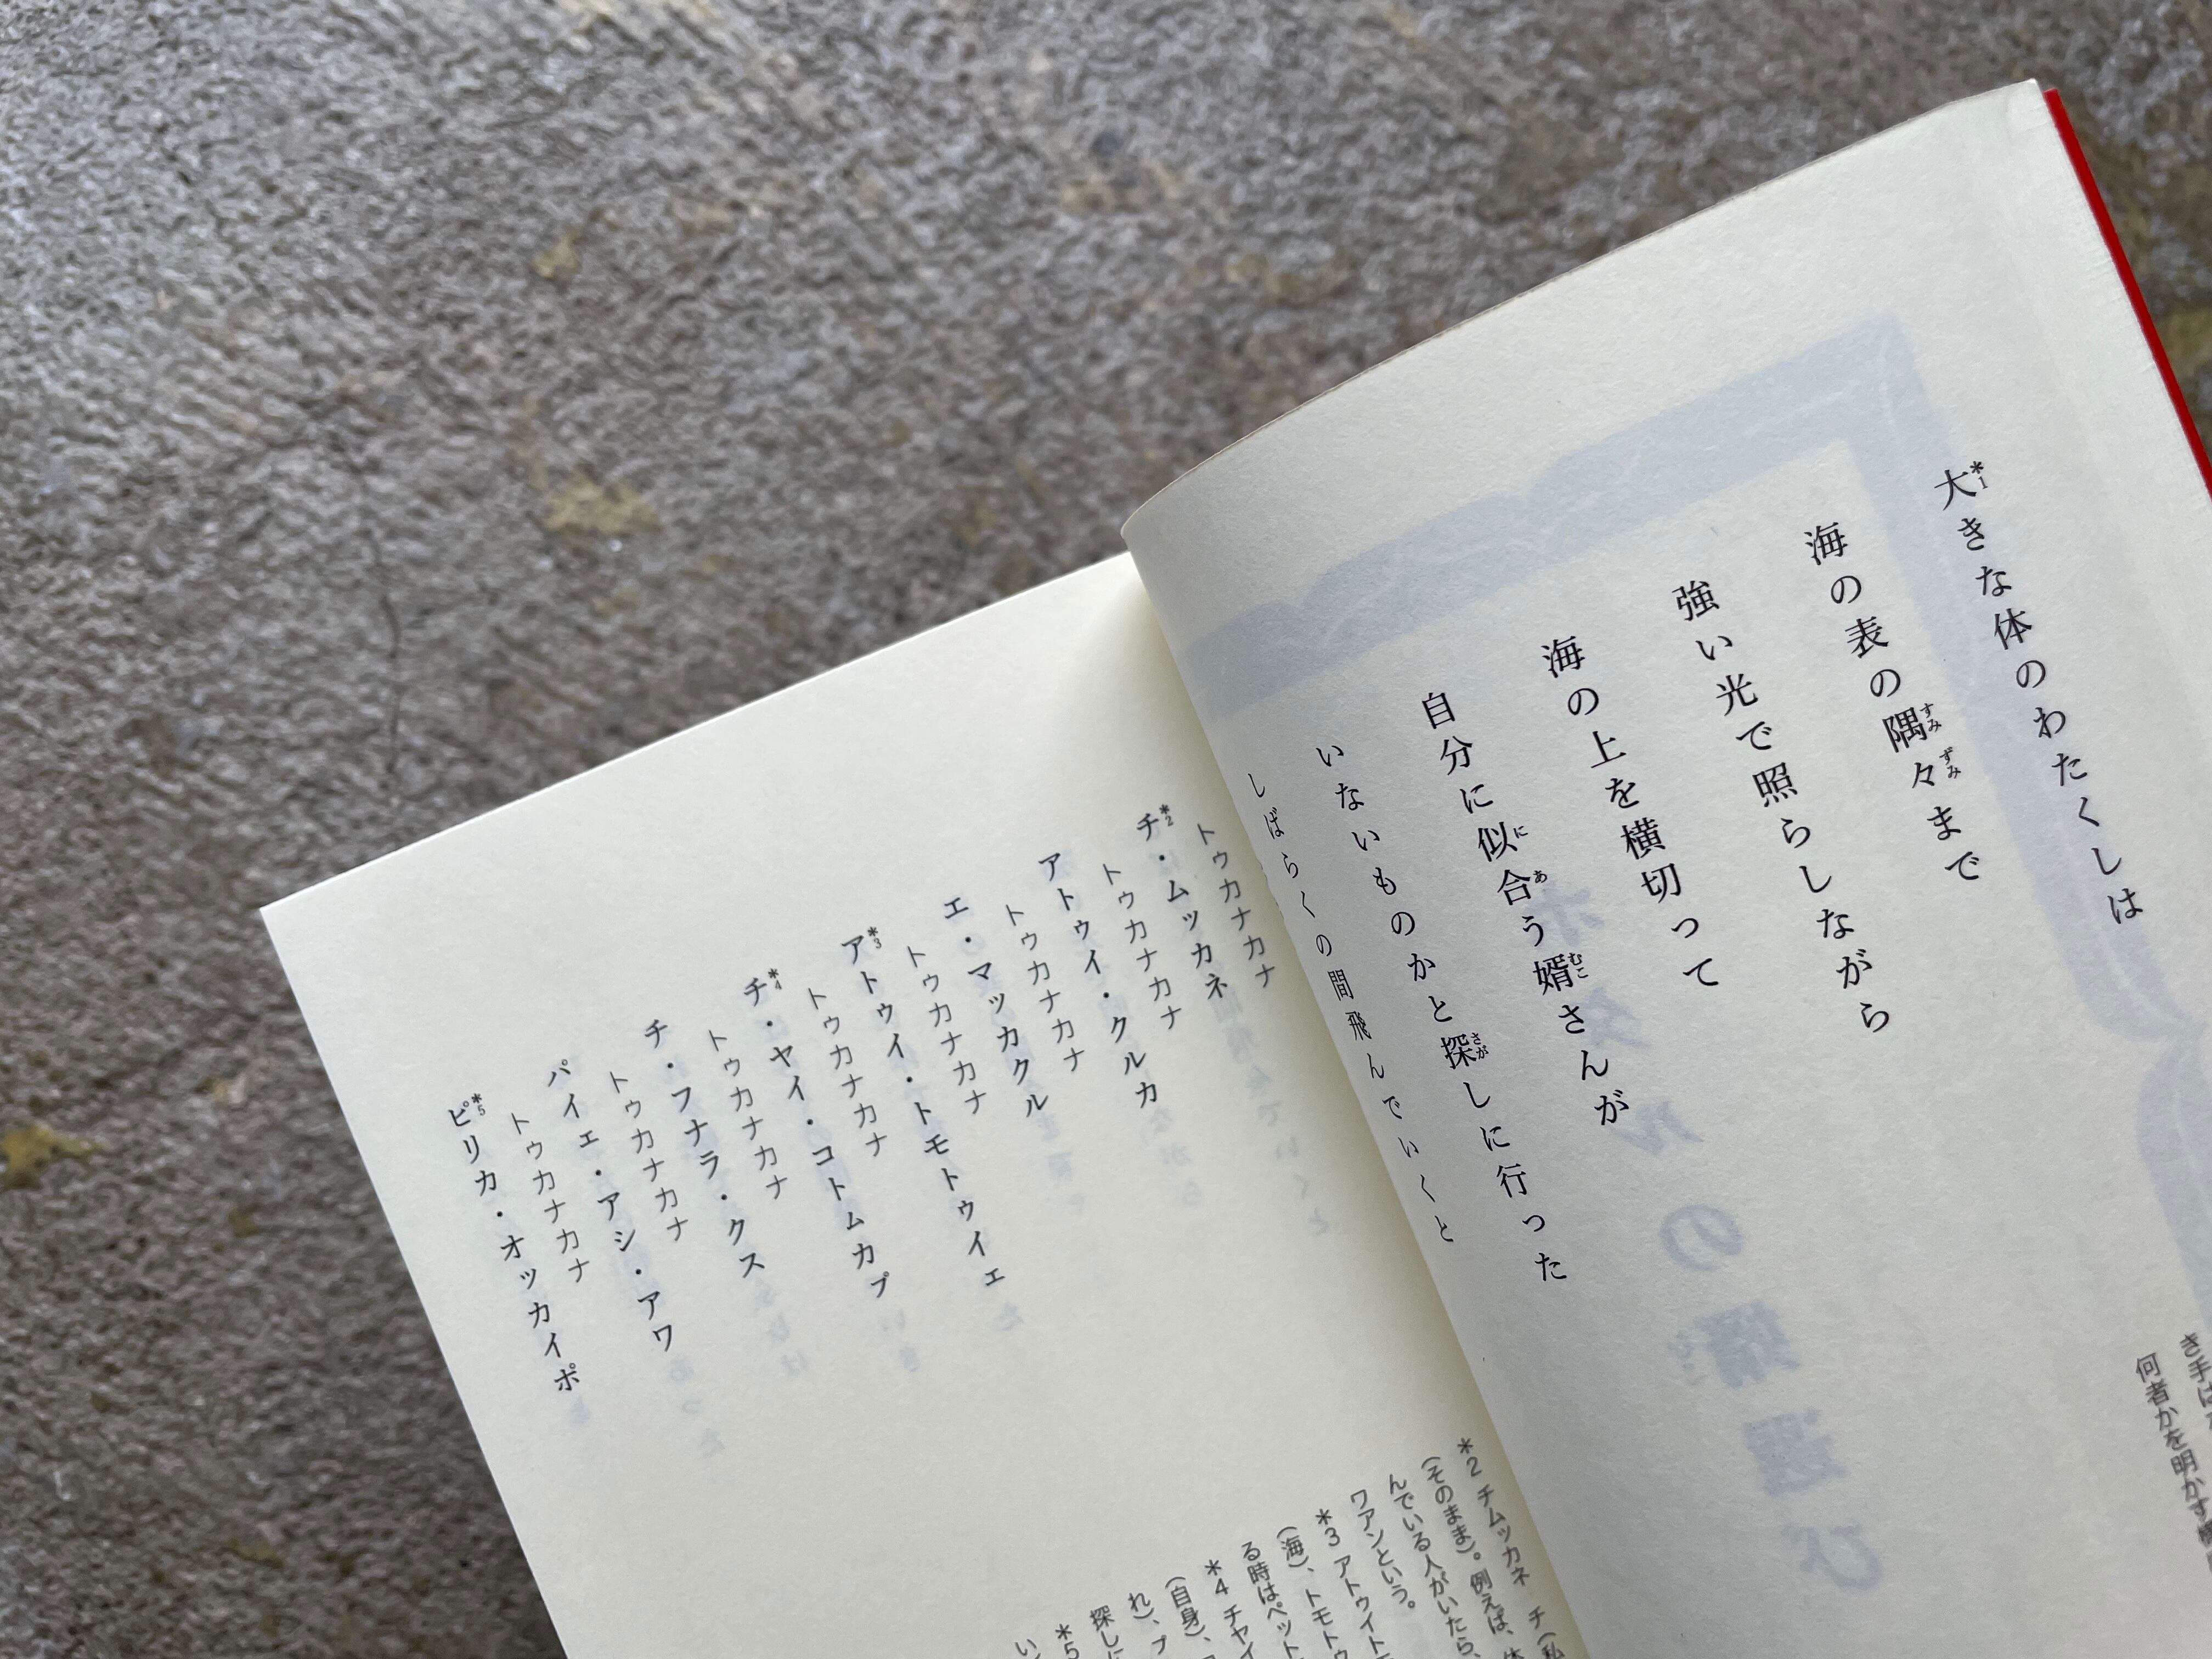 大*1きな体のわたくしは
海の表の隅々まで
強い光で照らしながら
海の上を横切って
自分に似合う婿さんが
いないものかと探しに行った
しばらくの間飛んでいくと
き手は
何者かを明かす
トゥカナカナ
チ*2・ムッカネ
トゥカナカナカナ
アトゥイ・クルカ
トゥカナカナカナ
エ・マッカクル
トゥカナカナカナ
ア*3トゥイ・トモトゥイェ
トゥカナカナカナ
チ*4・ヤイ・コトムカプ
トゥカナカナカナ
チ・フナラ・クス
トゥカナカナカナ
パイェ・アシ・アワ
トゥカナカナカナ
ピ*5リカ・オッカイポ
*2 チムッカネ チ(私
(そのまま)。例えば、
んでいる人がいたら、
ワアンという。
*3 アトゥイト
(海)、トモトゥ
る時はペット
*4 チヤイ
(自身)、
れ)、プ
探しに
*5
い